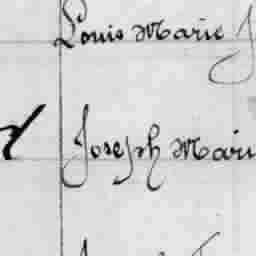 Louis Marie J
Joseph Marie